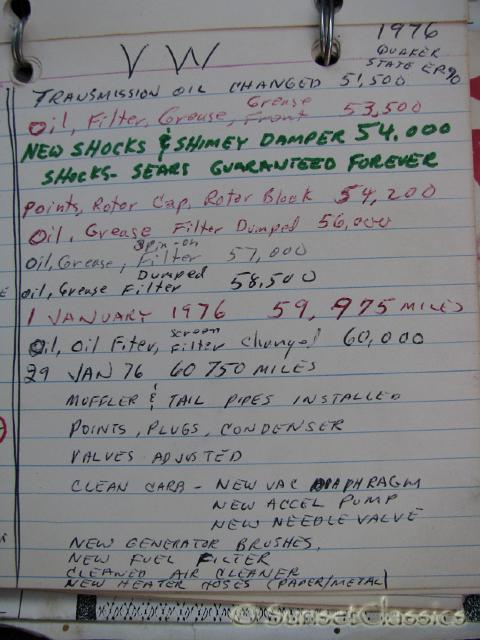 1976
VW
QUAKER
STATE EP 90
TRANSMISSION OIL CHANGED 51,500
Oil, Filter, Grease, Grease Front 53,500
NEW SHOCKS & SHIMEY DAMPER 54,000
SHOCKS- SEARS GUARANTEED FOREVER
Points, Rotor Cap, Rotor Block 54,200
Oil, Grease Filter Dumped 56,000
Oil, Grease, Spin-on Filter 57,000
Oil, Grease Filter Dumped 58,500
1 JANUARY 1976 59,975 MILES
Oil, Oil Fiter, screen Filter changed 60,000
29 JAN 76 60 750 MILES
MUFFLER & TAIL PIPES INSTALLED
POINTS, PLUGS, CONDENSER
VALVES ADJUSTED
CLEAN CARB - NEW VAC DIAPHRAGM
NEW ACCEL PUMP
NEW NEEDLE VALVE
NEW GENERATOR BRUSHES,
NEW FUEL FILTER
CLEANED AIR CLEANER
NEW HEATER HOSES (PAPER/METAL)
© SunsetClassics